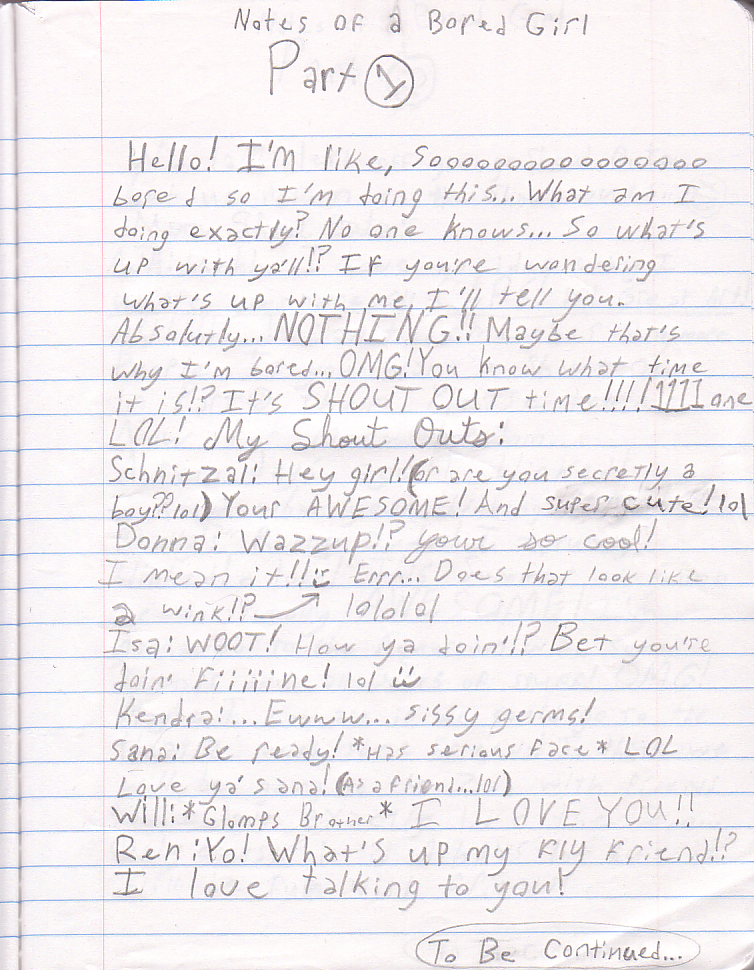 Notes of a Bored Girl
Part 1
Hello! I'm like, Sooooooooooooooooo
bored so I'm doing this... What am I
doing exactly? No one knows... So what's
up with ya'll!? If you're wondering
what's up with me, I'll tell you.
Absalutly... NOTHING!! Maybe that's
why I'm bored... OMG! You know what time
it is!? It's SHOUT OUT time!!!!1111 one
LOL! My Shout Outs:
Schnitzal: Hey girl! (or are you secretly a
boy?? lol) Your AWESOME! And super cute! lol
Donna: Wazzup!? your so cool!
I mean it!! Errr... Does that look like
a wink!? lololol
Isa: WOOT! How ya doin'!? Bet you're
doin' Fiiiiine! lol
Kendra: ...Ewww... sissy germs!
Sana: Be ready! *Has serious face* LOL
Love ya' sana! (As a friend...lol)
Will: *Glomps Brother* I LOVE YOU!!
Ren: Yo! What's up my fly friend!?
I love talking to you!
To Be Continued...